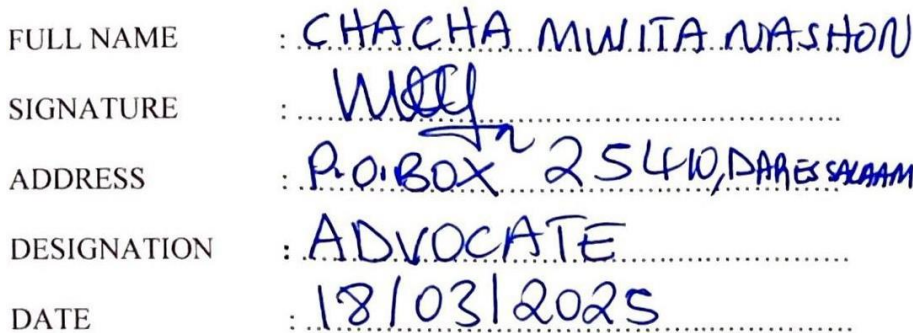 FULL NAME : CHACHA MWITA NASHON
SIGNATURE :
ADDRESS : P.O.BOX 25410, DARES SALAAM
DESIGNATION : ADVOCATE
DATE : 18/03/2025